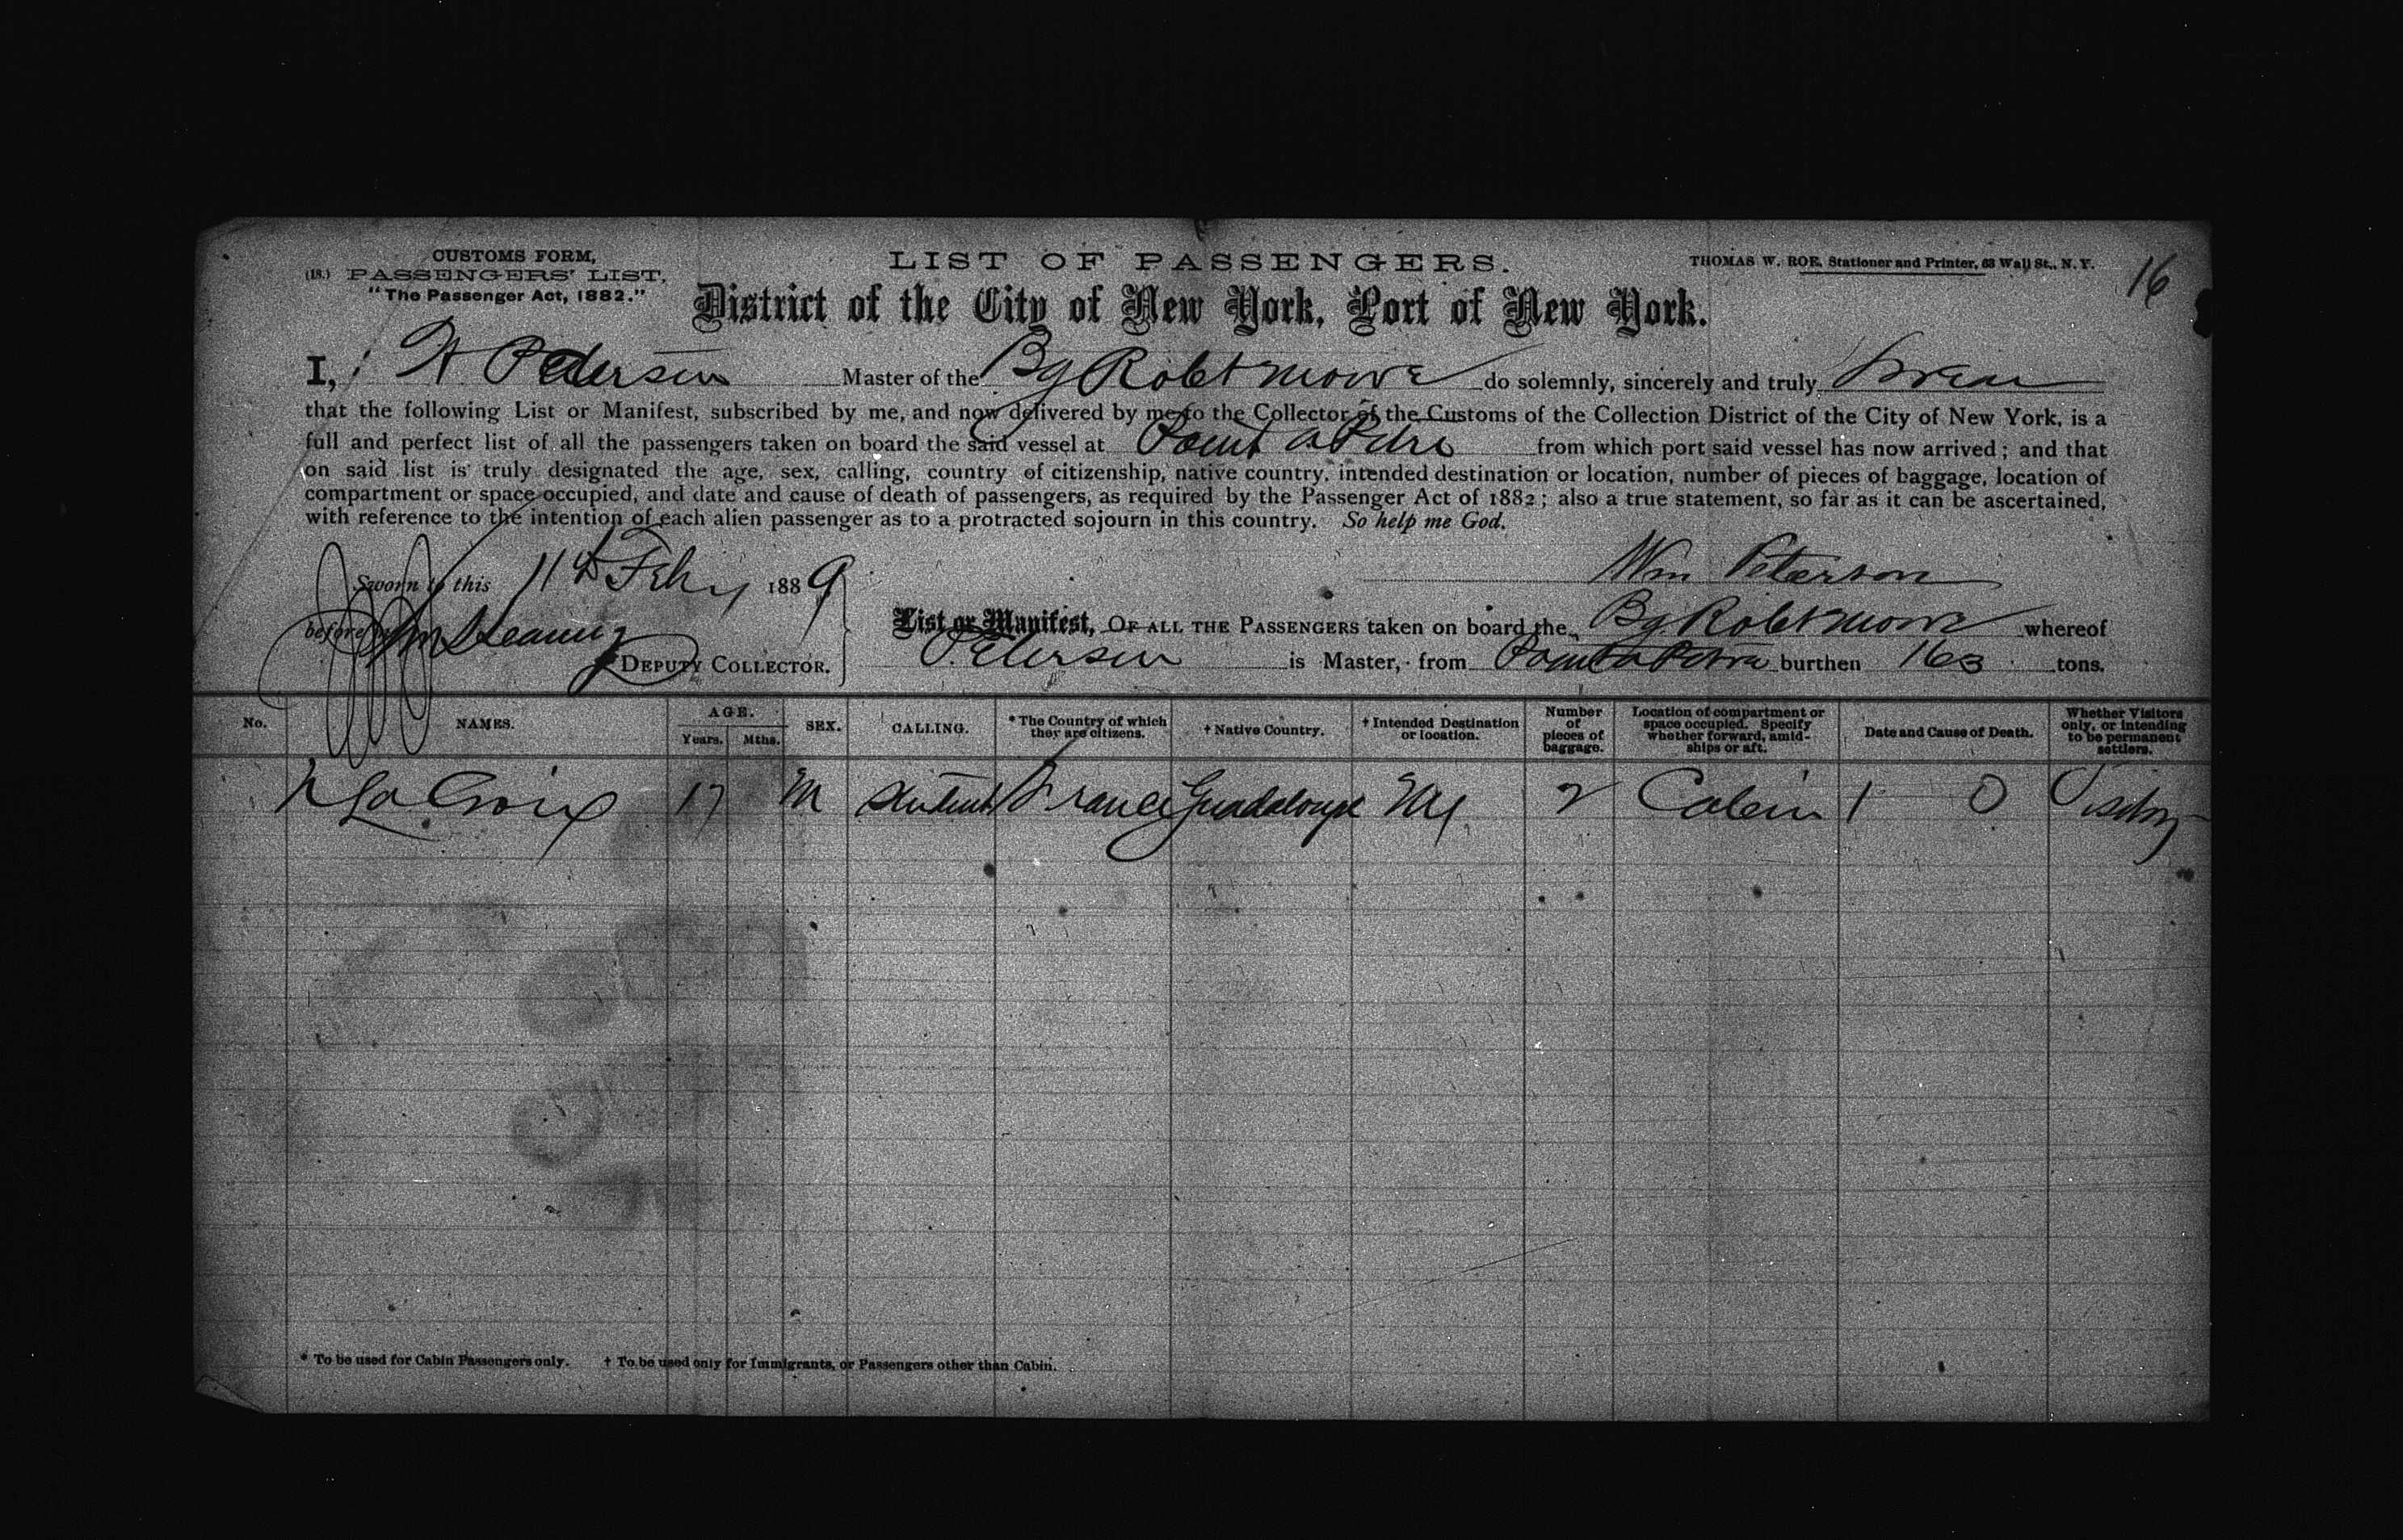 CUSTOMS FORM,
(18.) PASSENGERS' LIST,
"The Passenger Act, 1882."
LIST OF PASSENGERS.
THOMAS W. ROE, Stationer and Printer, 63 Wall St., N. Y.
16
District of the City of New York, Port of New York.
I, W Petersen Master of the Bg Robt Mowe do solemnly, sincerely and truly swear
that the following List or Manifest, subscribed by me, and now delivered by me to the Collector of the Customs of the Collection District of the City of New York, is a
full and perfect list of all the passengers taken on board the said vessel at Point a Petre from which port said vessel has now arrived; and that
on said list is truly designated the age, sex, calling, country of citizenship, native country, intended destination or location, number of pieces of baggage, location of
compartment or space occupied, and date and cause of death of passengers, as required by the Passenger Act of 1882; also a true statement, so far as it can be ascertained,
with reference to the intention of each alien passenger as to a protracted sojourn in this country. So help me God.
Sworn to this 11th Feby 1889
Wm Peterson
before me
DEPUTY COLLECTOR.
List or Manifest, OF ALL THE PASSENGERS taken on board the Bg Robt Mowe whereof
Petersen is Master, from Point a Petre burthen 163 tons.
No. NAMES. AGE. Years. Mths. SEX. CALLING. * The Country of which they are citizens. † Native Country. † Intended Destination or location. Number of pieces of baggage. Location of compartment or space occupied. Specify whether forward, amidships or aft. Date and Cause of Death. Whether Visitors only, or intending to be permanent settlers.
La Croix 17 M Student France Guadaloupe NY 2 Cabin 1 0 Visitor
* To be used for Cabin Passengers only. † To be used only for Immigrants, or Passengers other than Cabin.